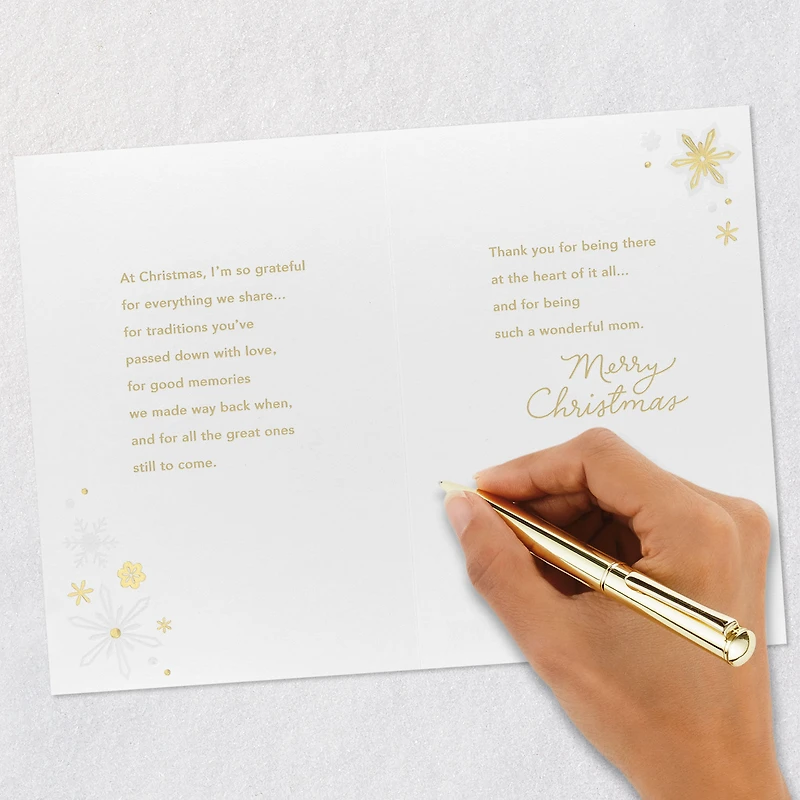 At Christmas, I'm so grateful
for everything we share...
for traditions you've
passed down with love,
for good memories
we made way back when,
and for all the great ones
still to come.
Thank you for being there
at the heart of it all...
and for being
such a wonderful mom.
Merry
Christmas